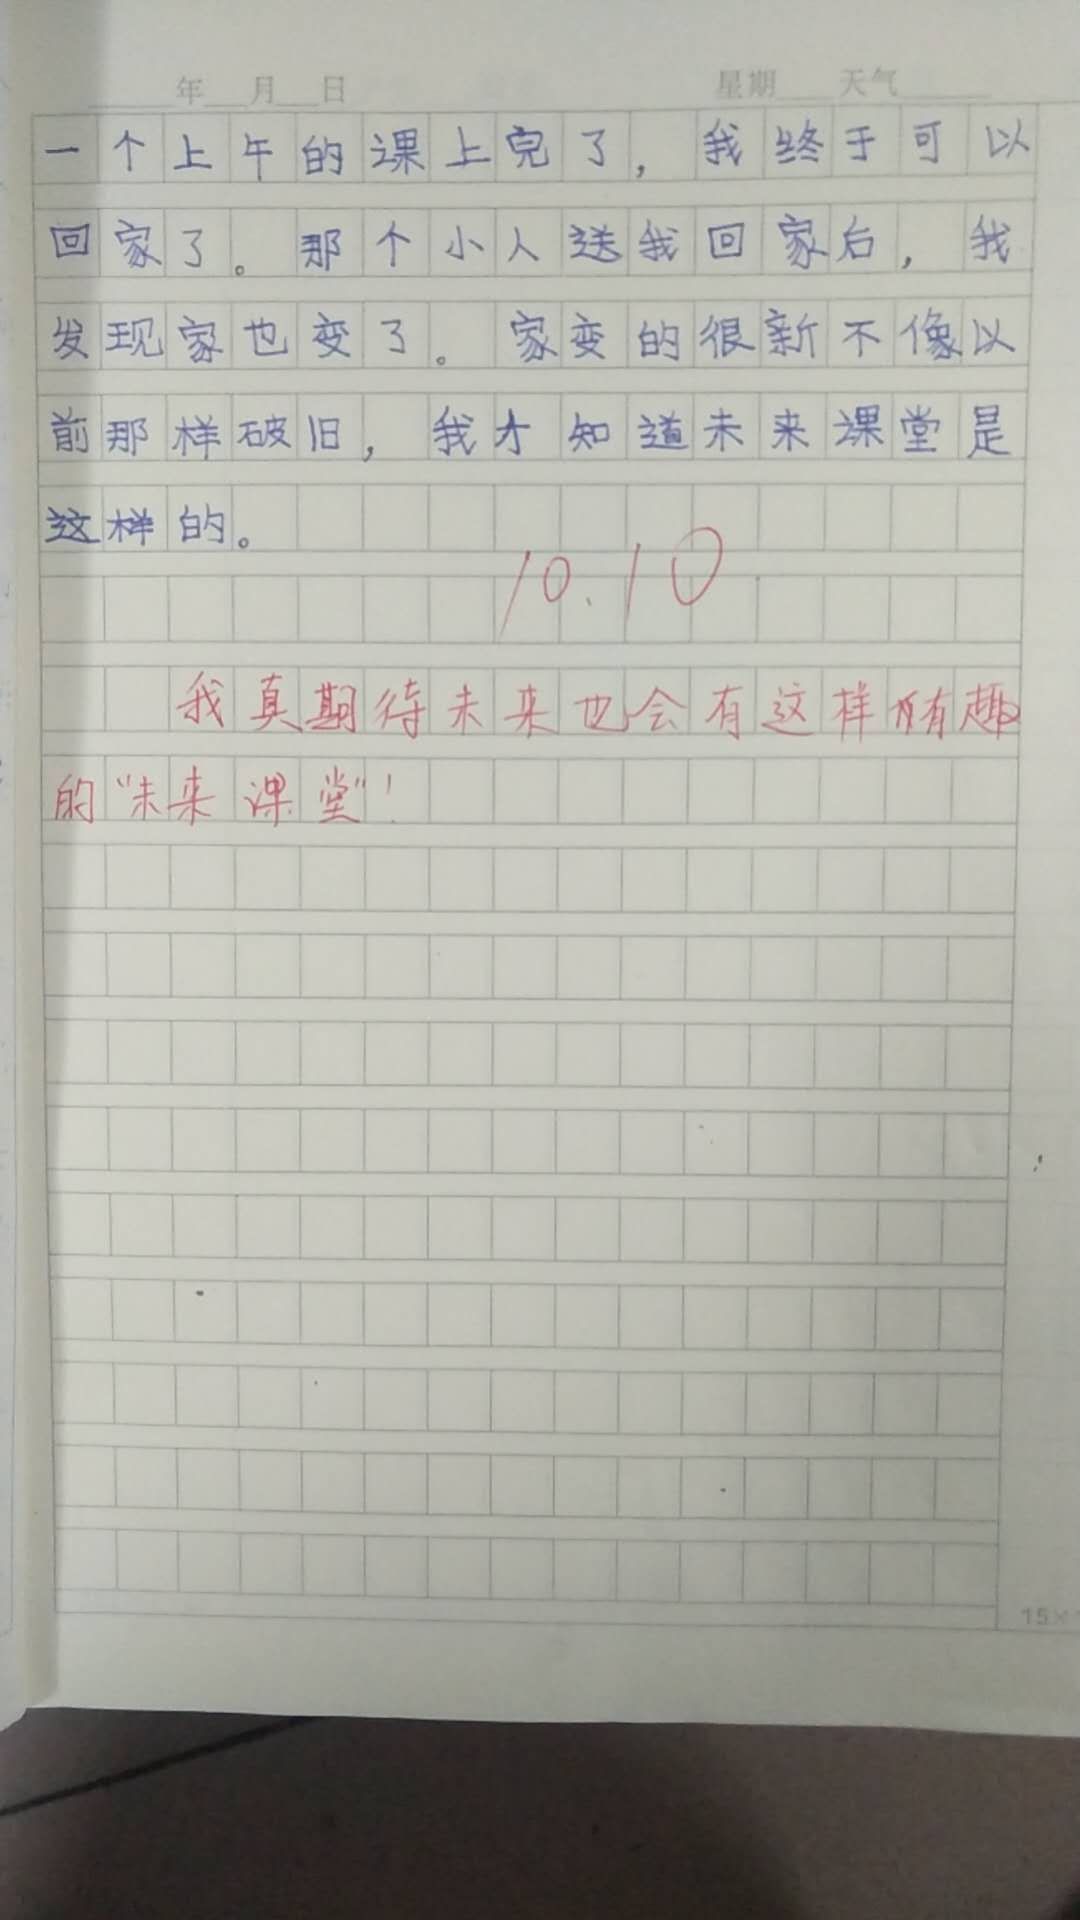 年 月 日 星期 天气
一个上午的课上完了，我终于可以
回家了。那个小人送我回家后，我
发现家也变了。家变的很新不像以
前那样破旧，我才知道未来课堂是
这样的。
10.10
我真期待未来也会有这样有趣
的“未来课堂”！